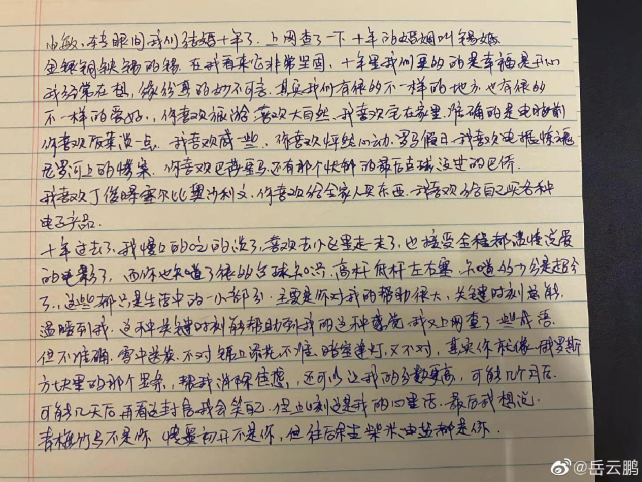 小敏，转眼间我们结婚十年了。上网查了一下十年的婚姻叫锡婚
金银铜铁锡的锡。在我看来它非常坚固，十年里我们更的是幸福是开心
我经常在想，缘份真的妙不可言。其实我们有很的不一样的地方也有很的
不一样的爱好，你喜欢旅游喜欢大自然，我喜欢宅在家里准确的是电脑前
你喜欢饭菜淡一点，我喜欢咸一些，你喜欢怦然心动，罗马假日，我喜欢电锯惊魂
尼罗河上的惨案，你喜欢巴萨皇马还有那个快的最后点球没进的巴乔
我喜欢丁俊晖塞尔比奥沙利文，你喜欢给全家人买东西，我喜欢给自己买各种
电子产品。
十年过去了，我慢的吃的淡了，喜欢去小区里走一走了，也接受全程都谈情说爱
的电影了，而你也知道了很的台球知识，高杆低杆左右塞，知道的
了，这些都只是生活中的一小部分，主要是你对我的帮助很大，关键时刻总能
温暖到我，这种关键时刻能帮助到我的这种感觉，我又上网查了一些成语
但不准确，雪中送炭，不对锦上添花不准 暗室逢灯，又不对，其实你就像一俄罗斯
方块里的那个竖条，帮我消除焦虑，还可以让我的分数更高，可能几个月后
可能几天后再看这封信我会笑自己，但此刻这是我的心里话。最后我想说
青梅竹马不是你 情窦初开不是你，但往后余生柴米油盐都是你。
@岳云鹏